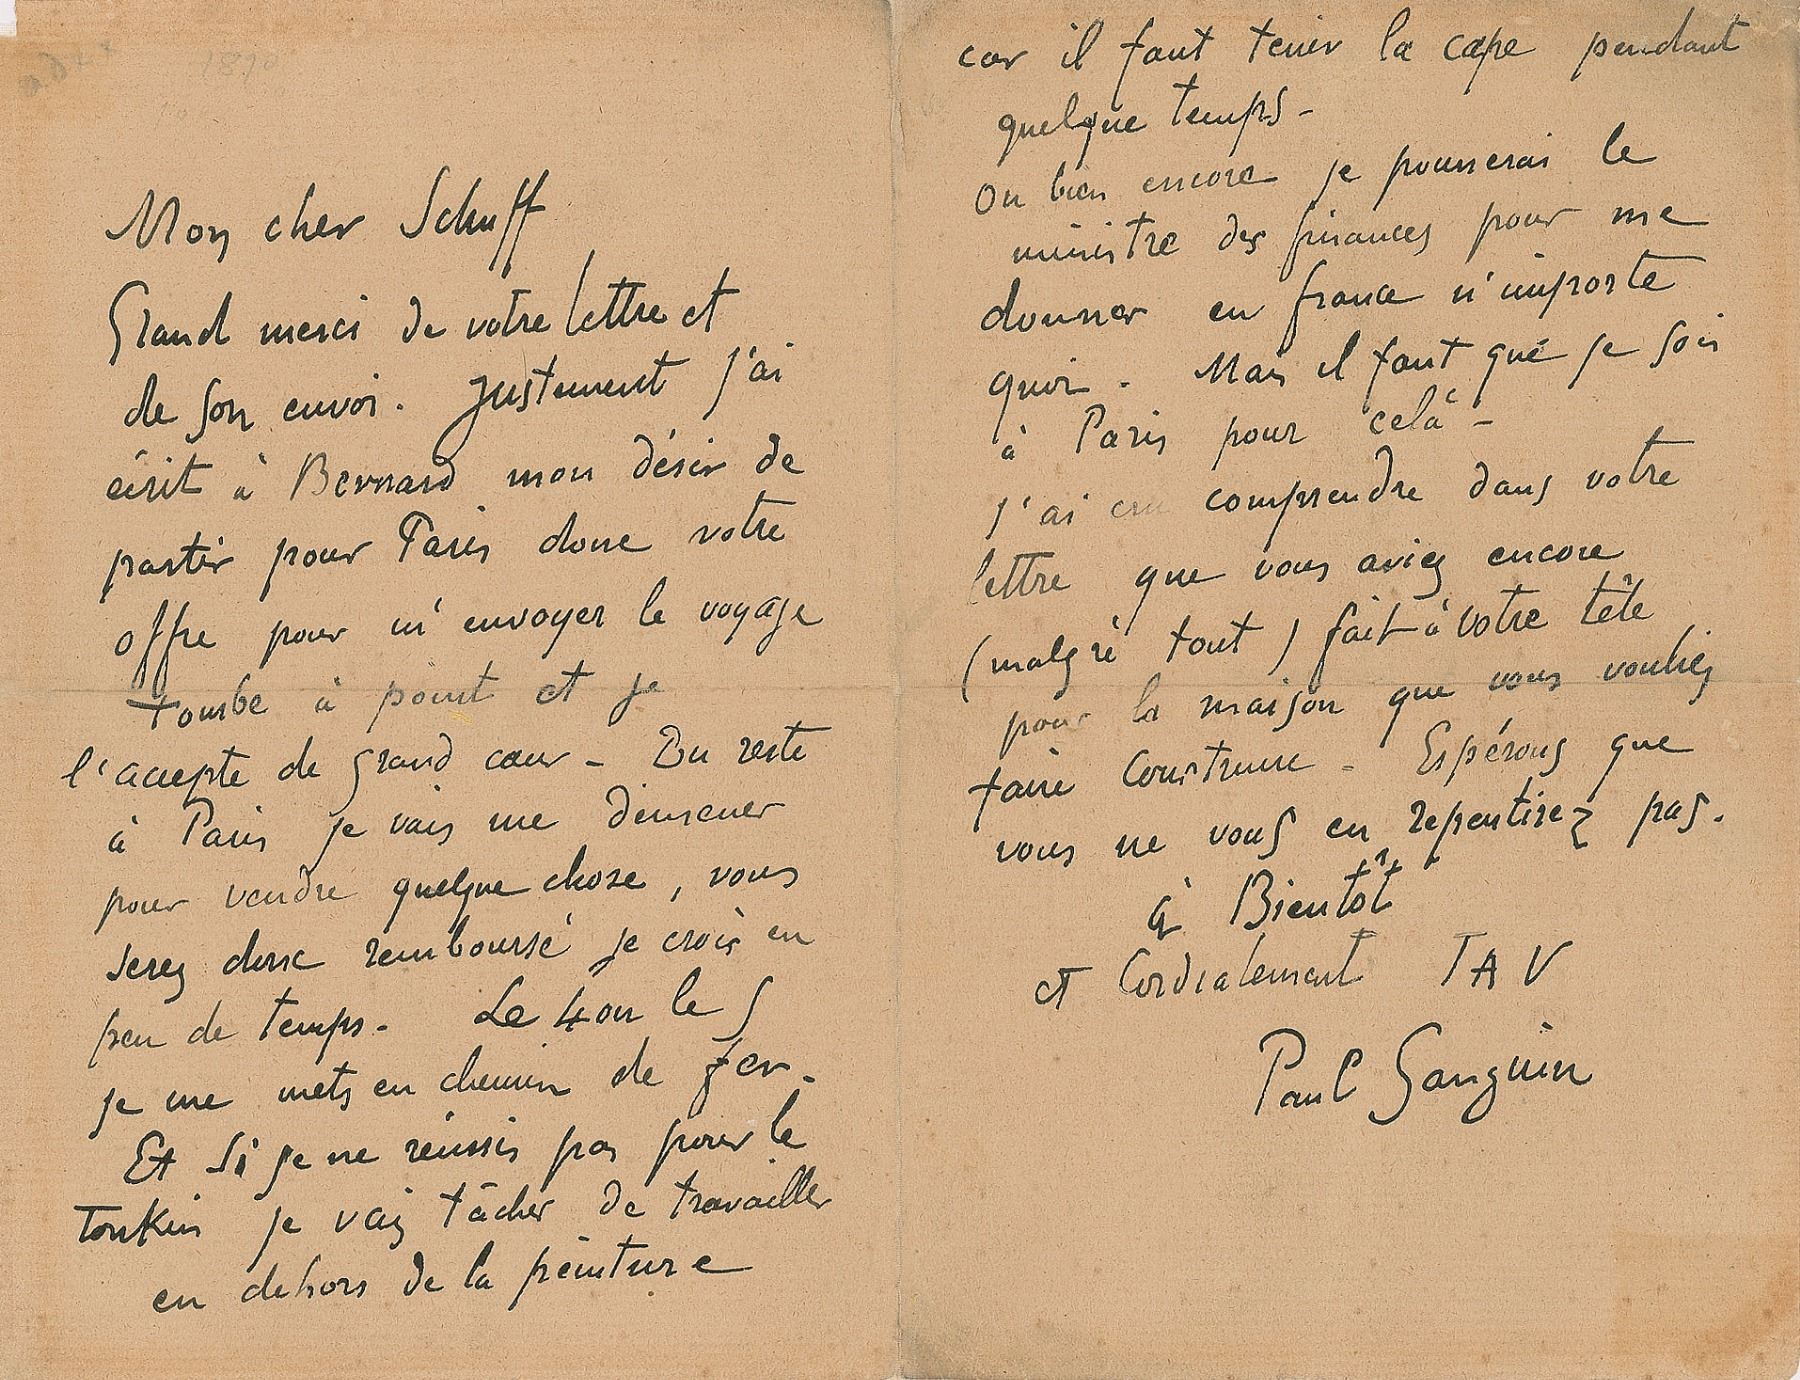 Mon cher Schuff
Grand merci de votre lettre et
de son envoi. Justement j'ai
écrit à Bernard mon désir de
partir pour Paris donc votre
offre pour m'envoyer le voyage
tombe à point et je
l'accepte de grand cœur - Du reste
à Paris je vais me démener
pour vendre quelque chose, vous
serez donc remboursé je crois en
peu de temps. Le 4 ou le 5
je me mets en chemin de fer.
Et si je ne réussis pas pour le
Tonkin je vais tâcher de travailler
en dehors de la peinture
car il faut tenir la cape pendant
quelque temps -
Ou bien encore je pousserai le
ministre des finances pour me
donner en france n'importe
quoi. Mais il faut que je sois
à Paris pour celà -
J'ai cru comprendre dans votre
lettre que vous aviez encore
(malgré tout) fait à votre tête
pour la maison que vous vouliez
faire construire - Espérons que
vous ne vous en repentirez pas.
à Bientôt
et Cordialement TAV
Paul Gauguin